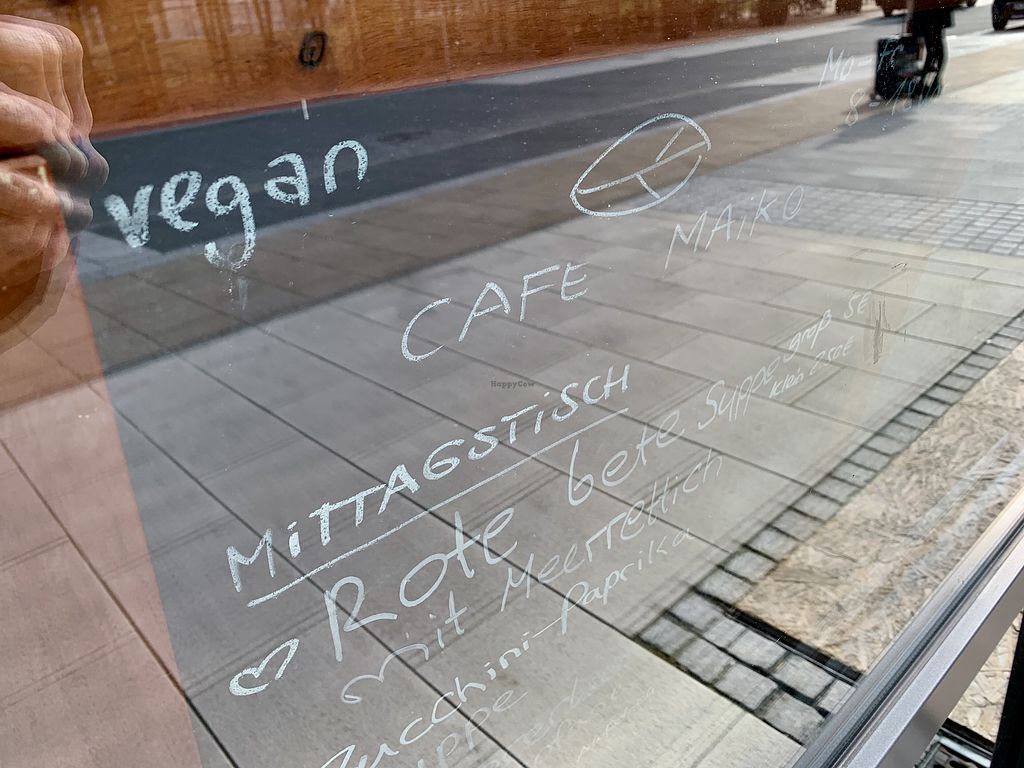 vegan
Mo-Fr
8-18
CAFE MAiKO
MiTTAGSTiSCH
Rote bete Suppe groß 5€
klein
mit Meerrettich
Zucchini-Paprika
Suppe
HappyCow